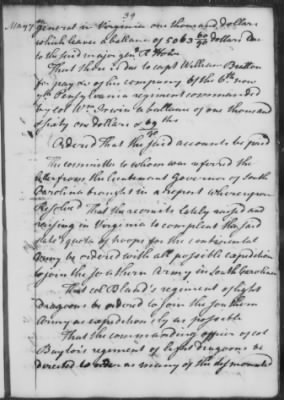 39
May 7th general in Virginia one thousand dollars
which leaves a ballance of 5063 60/90 dollars due
to the said major genl R Howe
That there is due to capt William Bratton
for pay &c of his company of the 6th now
7th Pensylvania regiment commanded
by col Wm Irwin a ballance of one thousand
& sixty one dollars & 69/90 ths
Ordered That the said accounts be paid
The committee to whom was referred the
letter from the lieutenant Governor of South
Carolina brought in a report whereupon
Resolved That the recruits lately raised and
raising in Virginia to compleat the said
state's quota of troops for the continental
army be ordered with all possible expedition
to join the southern Army in South Carolina
That col Bland's regiment of light
dragoons be ordered to join the southern
Army as expeditiously as possible
That the commanding officer of col
Baylor's regiment of light dragoons be
directed to order as many of the dismounted